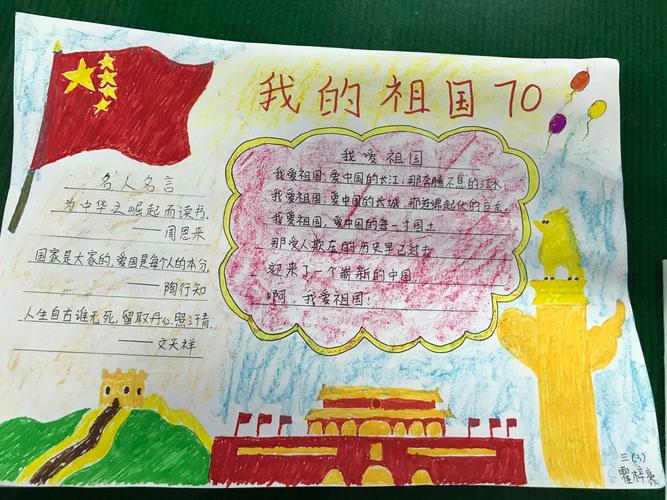 我的祖国70
名人名言
为中华之崛起而读书.
——周恩来
国家是大家的,爱国是每个人的本分.
——陶行知
人生自古谁无死,留取丹心照汗青.
——文天祥
我爱祖国
我爱祖国,爱中国的长江,那奔腾不息的江水,
我爱祖国,爱中国的长城,那连绵起伏的巨龙,
我爱祖国,爱中国的每一寸国土
那受人欺在的历史早已过去
迎来了一个崭新的中国.
啊,我爱祖国!
三(3)
霍梓亮